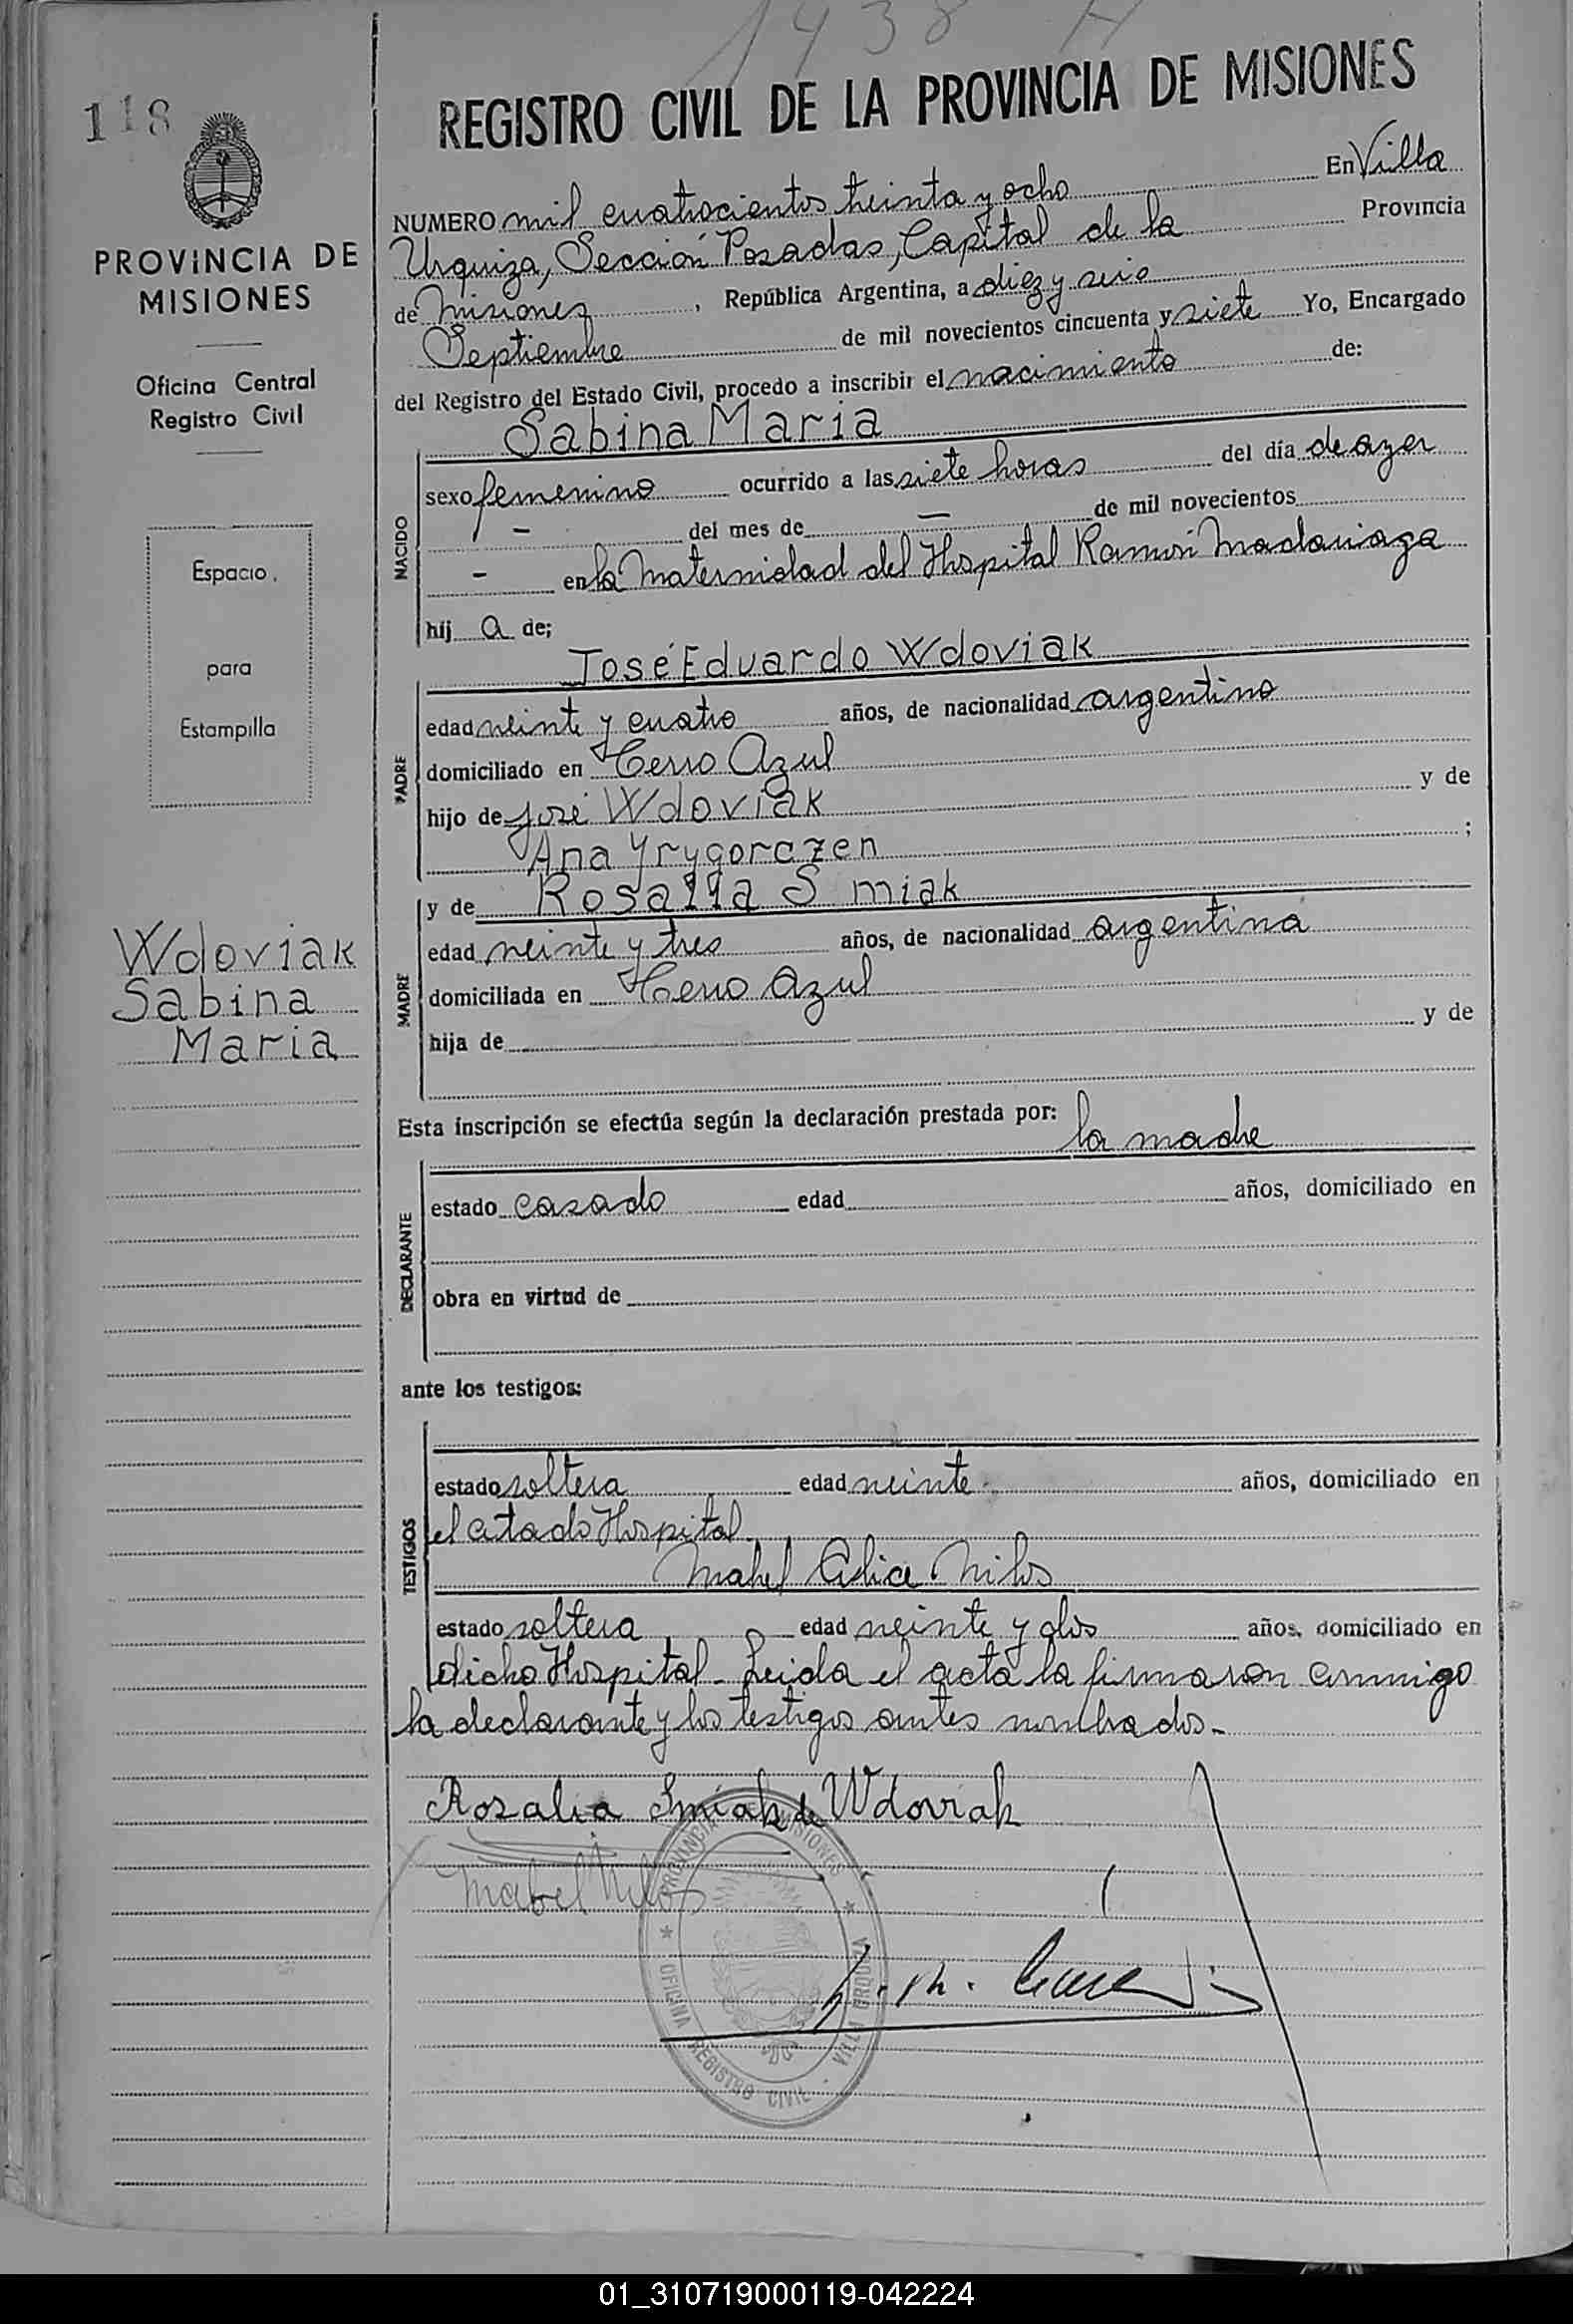 1438 A
118
REGISTRO CIVIL DE LA PROVINCIA DE MISIONES
PROVINCIA DE
MISIONES
Oficina Central
Registro Civil
Espacio
para
Estampilla
Wdoviak
Sabina
Maria
NUMERO mil cuatrocientos treinta y ocho En Villa
Urquiza, Sección Posadas, Capital de la Provincia
de Misiones, República Argentina, a diez y seis
Septiembre de mil novecientos cincuenta y siete Yo, Encargado
del Registro del Estado Civil, procedo a inscribir el nacimiento de:
Sabina Maria
NACIDO
sexo femenino ocurrido a las siete horas del día de ayer
- del mes de - de mil novecientos
- en la Maternidad del Hospital Ramón Madariaga
hij a de;
José Eduardo Wdoviak
PADRE
edad veinte y cuatro años, de nacionalidad argentino
domiciliado en Cerro Azul
hijo de José Wdoviak y de
Ana Yrygorczen ;
y de Rosalia Smiak
MADRE
edad veinte y tres años, de nacionalidad argentina
domiciliada en Cerro Azul
hija de y de
Esta inscripción se efectúa según la declaración prestada por: la madre
DECLARANTE
estado casado edad años, domiciliado en
obra en virtud de
ante los testigos:
TESTIGOS
estado soltera edad veinte años, domiciliado en
el citado Hospital
Mabel Alice Nilos
estado soltera edad veinte y dos años, domiciliado en
dicho Hospital - Leida el acta la firmaron conmigo
la declarante y los testigos antes nombrados.-
Rosalia Smiak de Wdoviak
Mabel Nilos
PROVINCIA MISIONES
OFICINA REGISTRO CIVIL - VILLA URQUIZA
01_310719000119-042224